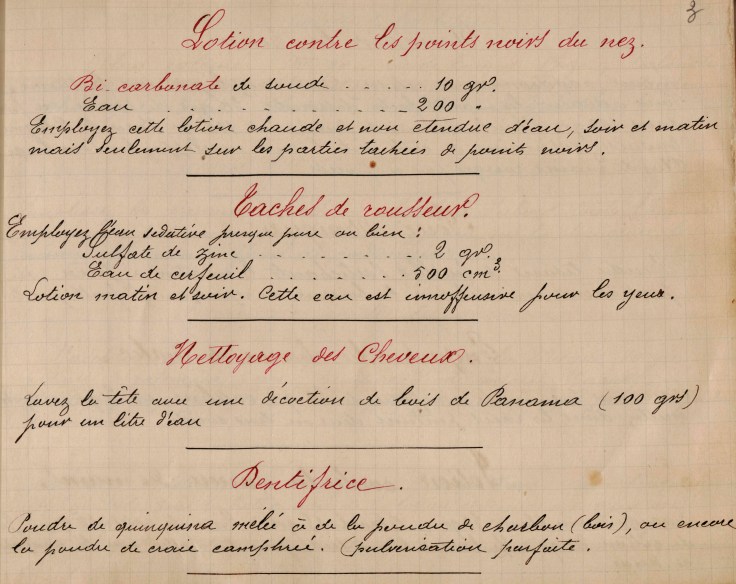 3
Lotion contre les points noirs du nez.
Bi-carbonate de soude . . . . . 10 gr.
Eau . . . . . . . . . . . 200 "
Employez cette lotion chaude et non étendue d'eau, soir et matin
mais seulement sur les parties tachées de points noirs.
Taches de rousseur.
Employez l'eau sédative presque pure ou bien :
Sulfate de zinc . . . . . . . . 2 gr.
Eau de cerfeuil . . . . . . . 500 cm3.
Lotion matin et soir. Cette eau est innoffensive pour les yeux.
Nettoyage des Cheveux.
Lavez la tête avec une décoction de bois de Panama (100 grs)
pour un litre d'eau
Dentifrice.
Poudre de quinquina mêlée à de la poudre de charbon (bois), ou encore
la poudre de craie camphrée. (pulvérisation parfaite.